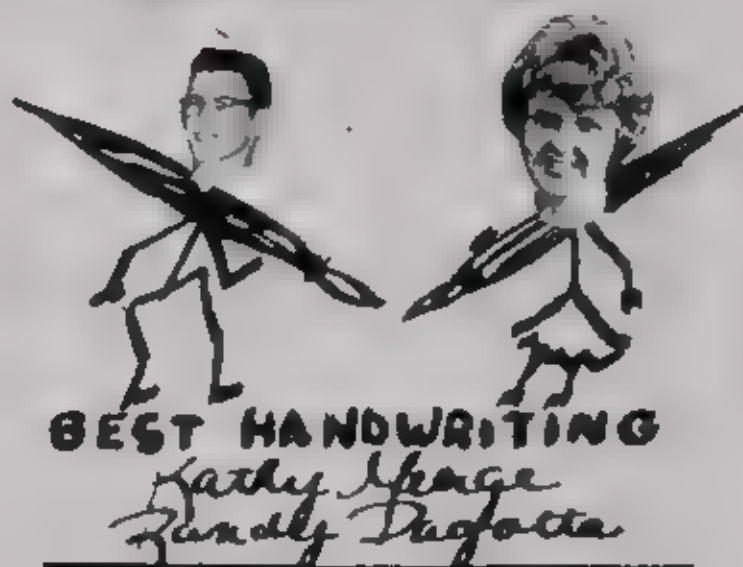 BEST HANDWRITING
Kathy
Randy Dagotta